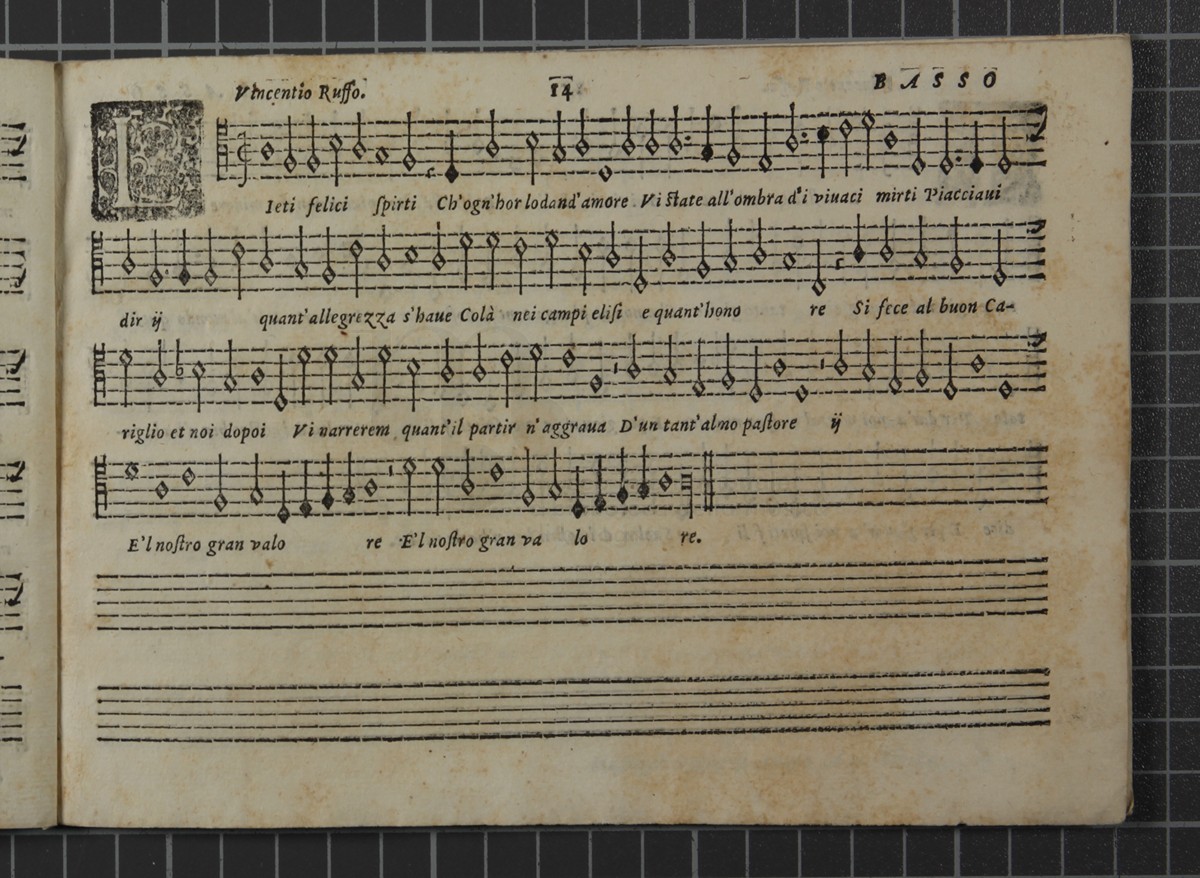 Vincentio Ruffo. 14 BASSO
LIeti felici spirti Ch'ogn'hor lodand'amore Vi state all'ombra d'i viuaci mirti Piacciaui
dir ij quant'allegrezza s'haue Colà nei campi elisi e quant'hono re Si fece al buon Ca-
riglio et noi dopoi Vi narrerem quant'il partir n'aggraua D'un tant'almo pastore ij
E'l nostro gran valo re E'l nostro gran va lo re.